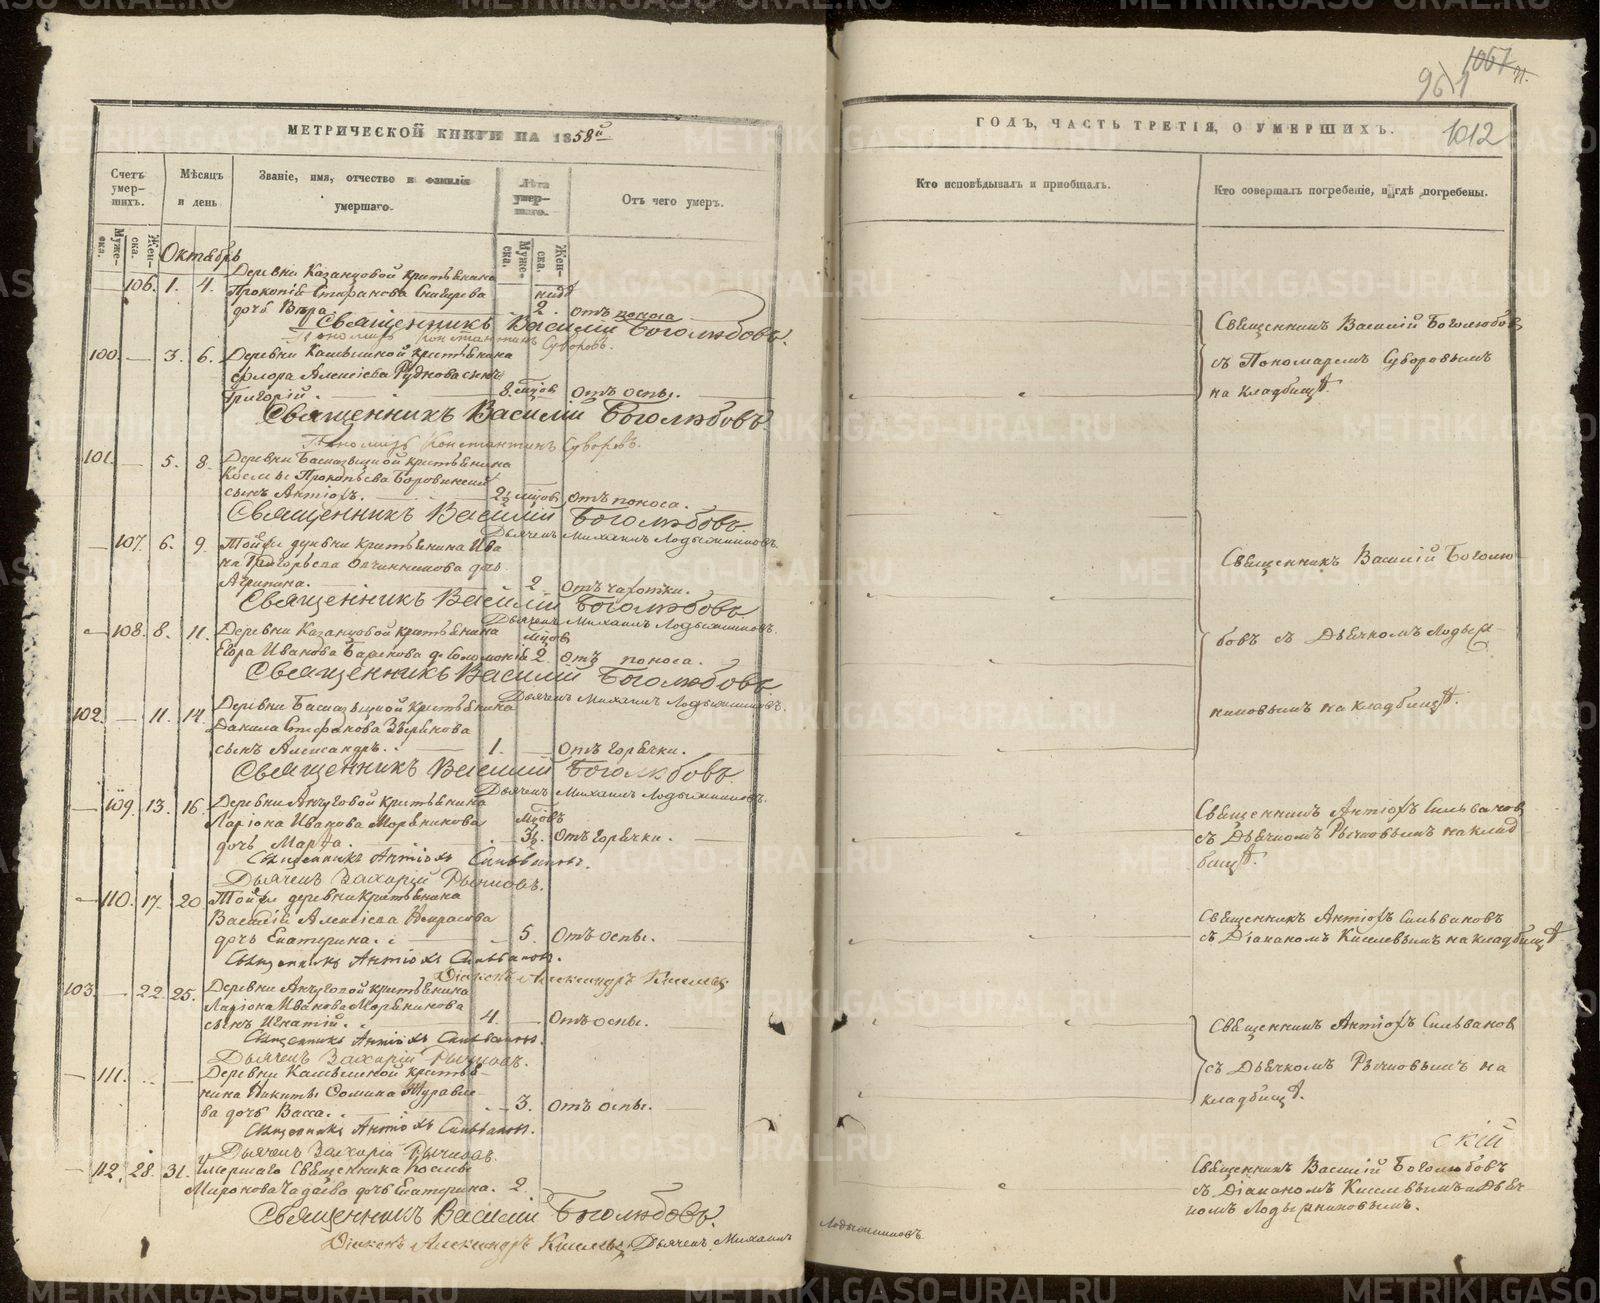 1067
961
МЕТРИЧЕСКОЙ КНИГИ НА 1858й
ГОДЪ, ЧАСТЬ ТРЕТІЯ, О УМЕРШИХЪ.
1012
Счетъ умер-шихъ.
Мѣсяцъ и день
Званіе, имя, отчество и фамилія умершаго.
Лѣта умер-шаго.
Отъ чего умеръ.
Кто исповѣдывалъ и пріобщалъ.
Кто совершалъ погребеніе, и гдѣ погребены.
Муже-ска.
Жен-ска.
Муже-ска.
Жен-ска.
Октябрь
Деревни Казанцовой крестьянина
106. 1. 4. Прокопія Стефанова
дочь Вѣра. 2. отъ поноса
Священникъ Василій Боголюбовъ.
Пономарь Константинъ Суворовъ.
100. 3. 6. Деревни крестьянина
Флора Алексіева Рудкова сынъ
Григорій. 8. мцовъ Отъ оспы.
Священникъ Василій Боголюбовъ.
Пономарь Константинъ Суворовъ.
Священникъ Василій Боголюбовъ
съ Пономаремъ Суворовымъ
на кладбищѣ.
101. 5. 8. Деревни крестьянина
Космы Прокопьева
сынъ Антіохъ. 2½ мцовъ Отъ поноса.
Священникъ Василій Боголюбовъ.
Дьячекъ Михаилъ Лодыжниковъ.
107. 6. 9. Той же деревни крестьянина Ива
на Григорьева Овчинникова дочь
Агрипина. 2. Отъ чахотки.
Священникъ Василій Боголюбовъ.
Дьячекъ Михаилъ Лодыжниковъ.
108. 8. 11. Деревни Казанцовой крестьянина мцовъ
Егора Иванова дч Соломонія 2. Отъ поноса.
Священникъ Василій Боголюбовъ
Дьячекъ Михаилъ Лодыжниковъ.
102. 11. 14. Деревни крестьянина
Данила Стефанова Звѣрикова
сынъ Александръ. 1. Отъ горячки.
Священникъ Василій Боголюбовъ.
Дьячекъ Михаилъ Лодыжниковъ.
Священникъ Василій Боголю
бовъ съ Дьячкомъ Лодыж-
никовымъ на кладбищѣ.
109. 13. 16. Деревни Анчуговой крестьянина
Ларіона Иванова мцовъ
дочь Марѳа. 3½. Отъ горячки.
Священникъ Антіохъ Сильвановъ.
Дьячекъ Захарій Рычковъ.
Священникъ Антіохъ Сильвановъ
съ Дьячкомъ Рычковымъ на клад
бищѣ.
110. 17. 20 Той же деревни крестьянина
Василія Алексіева Некрасова
дочь Екатерина. 5. Отъ оспы.
Священникъ Антіохъ Сильвановъ.
Діаконъ Александръ Киселевъ
Священникъ Антіохъ Сильвановъ
съ Діакономъ Киселевымъ на кладбищѣ
103. 22. 25. Деревни Анчуговой крестьянина
Ларіона Иванова
сынъ Игнатій. 4. Отъ оспы.
Священникъ Антіохъ Сильвановъ.
Дьячекъ Захарій Рычковъ.
111. Деревни крестья-
нина Никиты Ѳомина Журавле
ва дочь Васса. 3. Отъ оспы.
Священникъ Антіохъ Сильвановъ.
Дьячекъ Захарій Рычковъ.
Священникъ Антіохъ Сильвановъ
съ Дьячкомъ Рычковымъ на
кладбищѣ.
112. 28. 31. Умершаго Священника Космы
Миронова дочь Екатерина. 2.
Священникъ Василій Боголюбовъ.
Діаконъ Александръ Киселевъ, Дьячекъ Михаилъ
Лодыжниковъ.
скій
Священникъ Василій Боголюбовъ
съ Діакономъ Киселевымъ и Дьяч
комъ Лодыжниковымъ.
METRIKI.GASO-URAL.RU